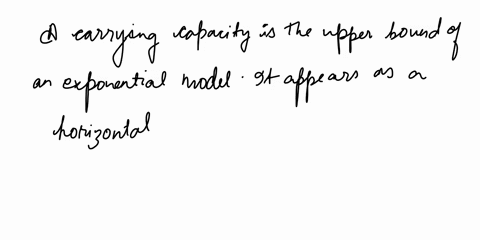 A carrying capacity is the upper bound of
an exponential model. It appears as a
horizontal